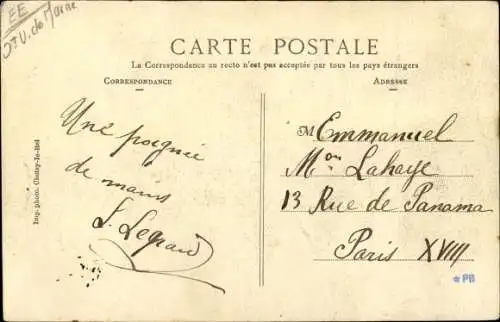 EE
St V. de Marne
CARTE POSTALE
La Correspondance au recto n'est pas acceptée par tous les pays étrangers
CORRESPONDANCE
ADRESSE
Une poignée
de mains
L. Legrand
M Emmanuel
Mon Lahaye
13 Rue de Panama
Paris XVIII
Imp. photo. Choisy-le-Roi
*PB